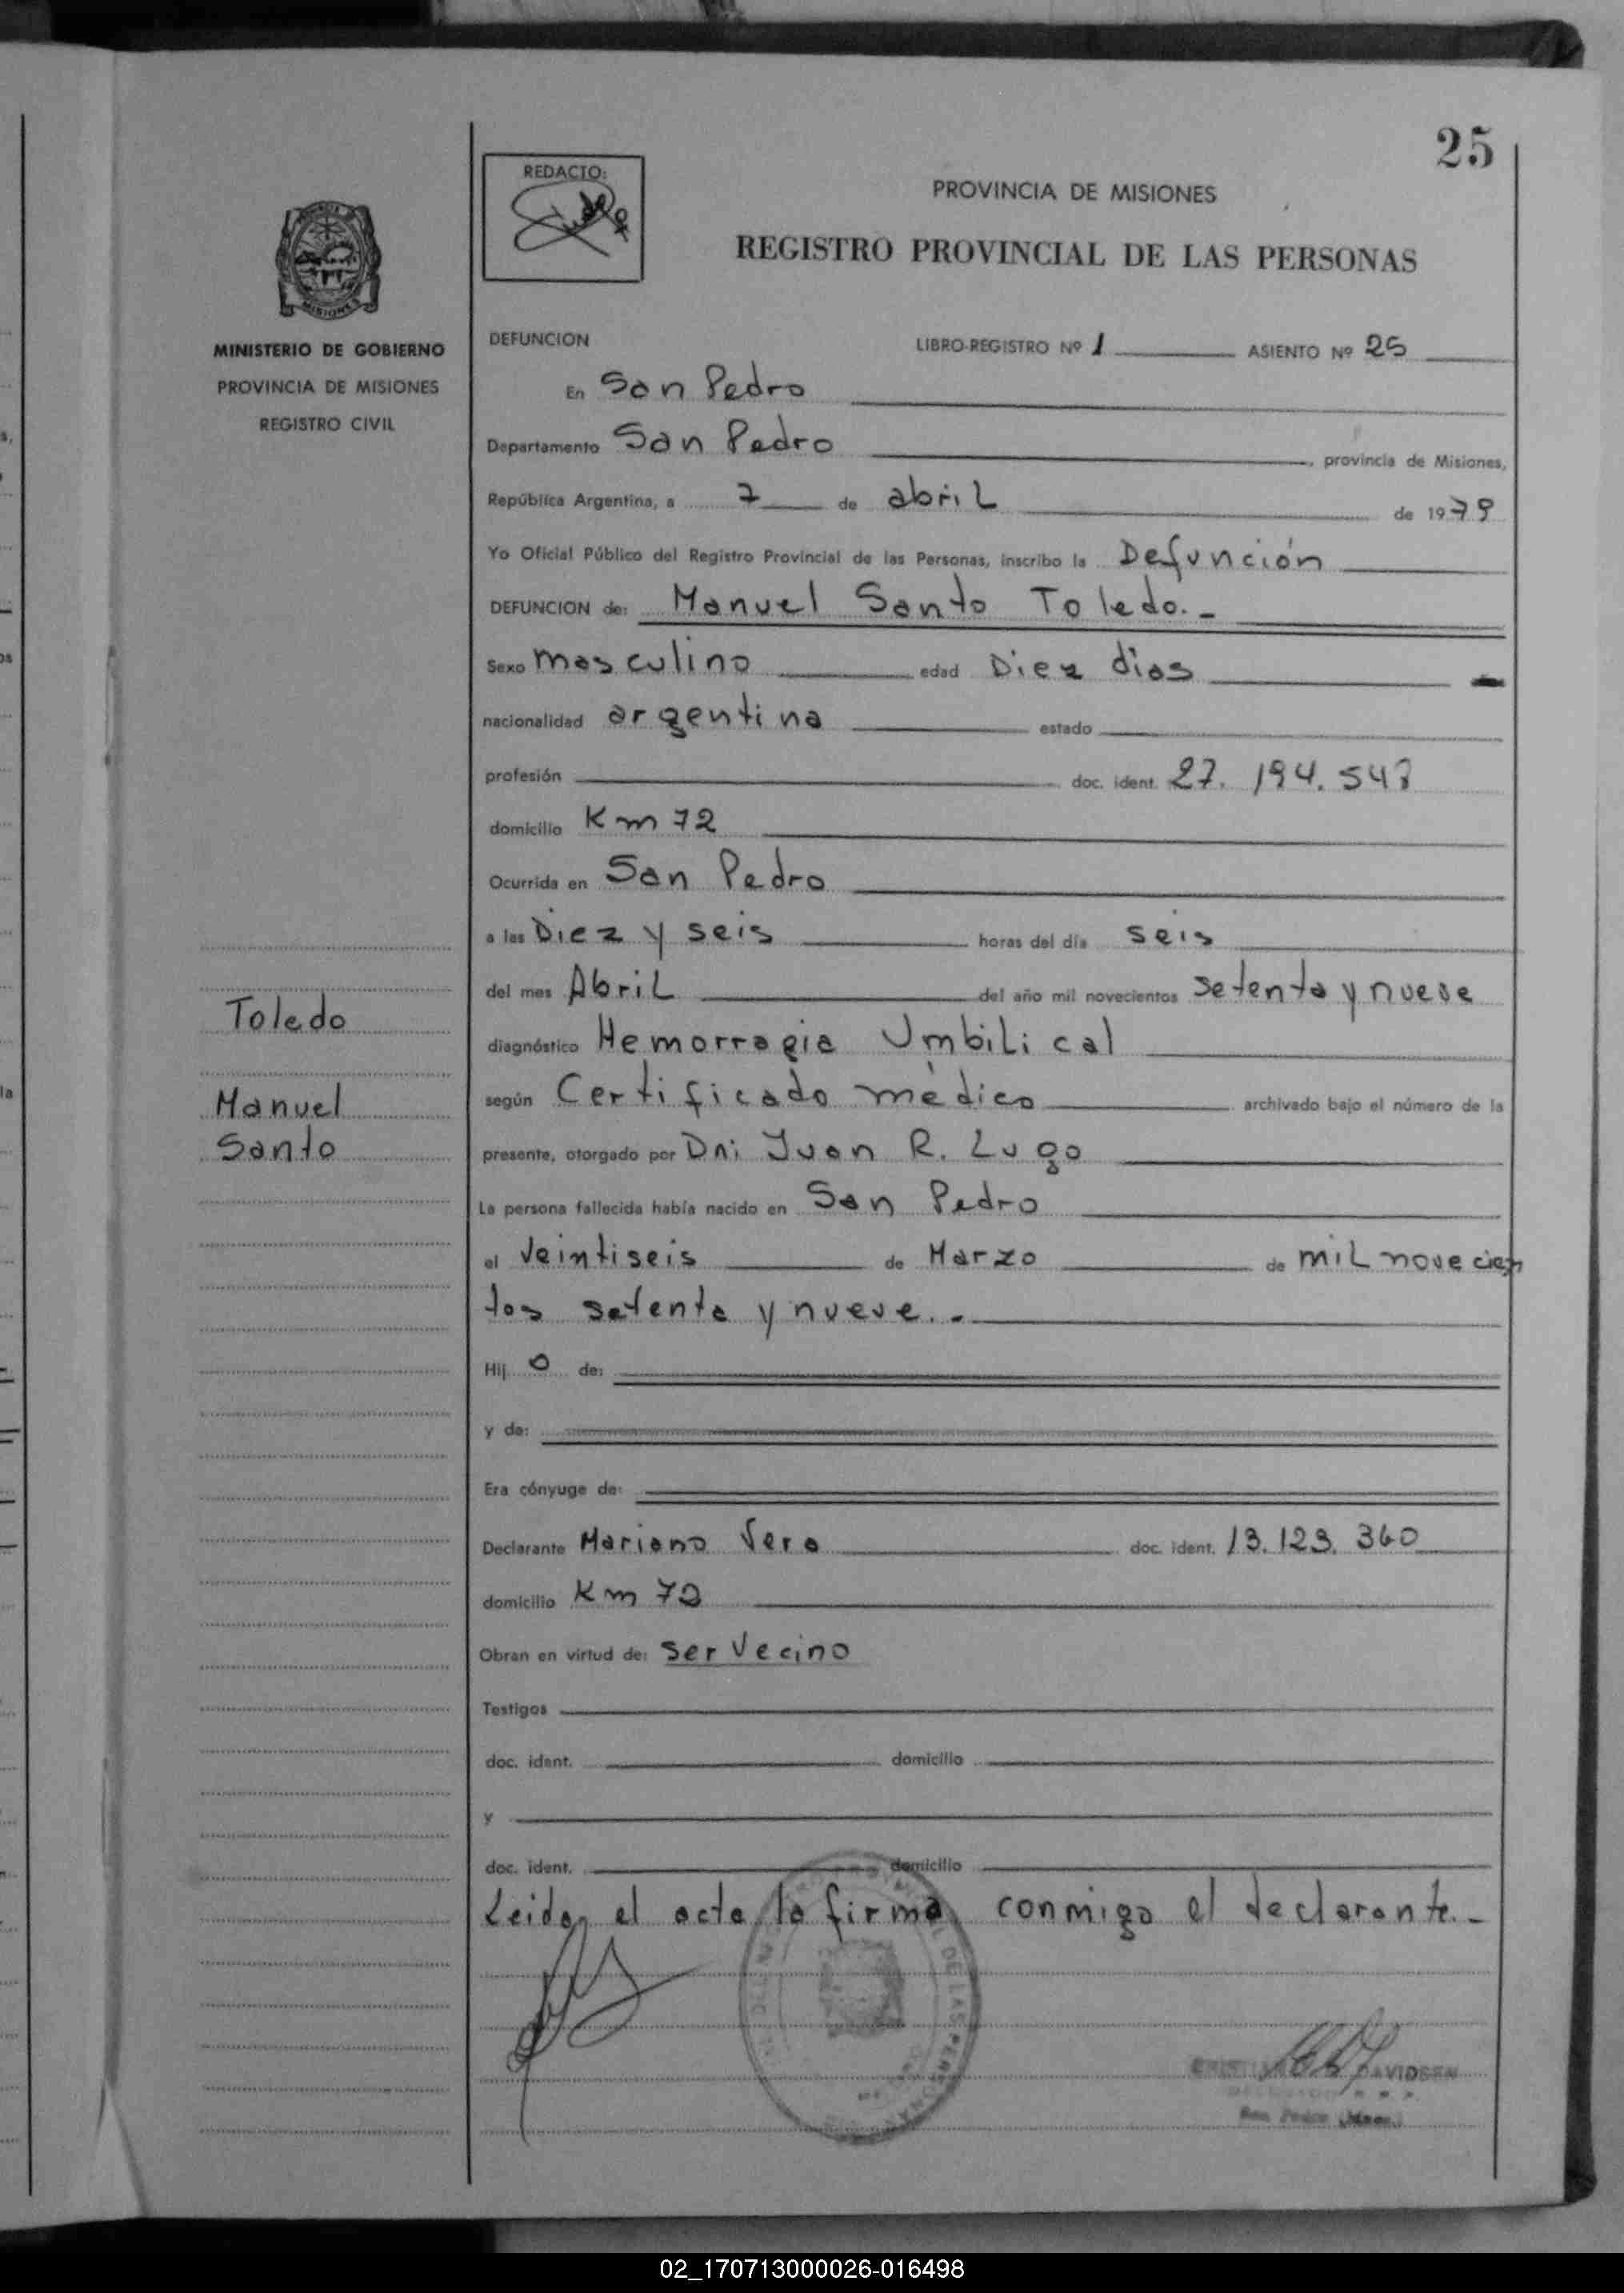 25
REDACTO:
PROVINCIA DE MISIONES
REGISTRO PROVINCIAL DE LAS PERSONAS
MISIONES
MINISTERIO DE GOBIERNO
PROVINCIA DE MISIONES
REGISTRO CIVIL
DEFUNCION LIBRO-REGISTRO Nº 1 ASIENTO Nº 25
En San Pedro
Departamento San Pedro, provincia de Misiones,
República Argentina, a 7 de abril de 1979
Yo Oficial Público del Registro Provincial de las Personas, inscribo la Defunción
DEFUNCION de: Manuel Santo Toledo.-
Sexo masculino edad Diez dias
nacionalidad argentina estado
profesión doc. ident. 27.194.547
domicilio Km 72
Ocurrida en San Pedro
a las Diez y seis horas del día seis
del mes Abril del año mil novecientos setenta y nueve
diagnóstico Hemorragia Umbilical
según Certificado médico archivado bajo el número de la
presente, otorgado por Dni Juan R. Lugo
La persona fallecida había nacido en San Pedro
el Veintiseis de Marzo de mil novecien
tos setenta y nueve.-
Hij o de:
y de:
Era cónyuge de:
Declarante Mariano Vera doc. ident. 13.123.360
domicilio Km 72
Obran en virtud de: ser Vecino
Testigos
doc. ident. domicilio
y
doc. ident. domicilio
Leida el acta la firma conmigo el declarante.-
Toledo
Manuel
Santo
DE LAS PERSONAS
DAVIDSEN
San Pedro (Mnes.)
02_170713000026-016498